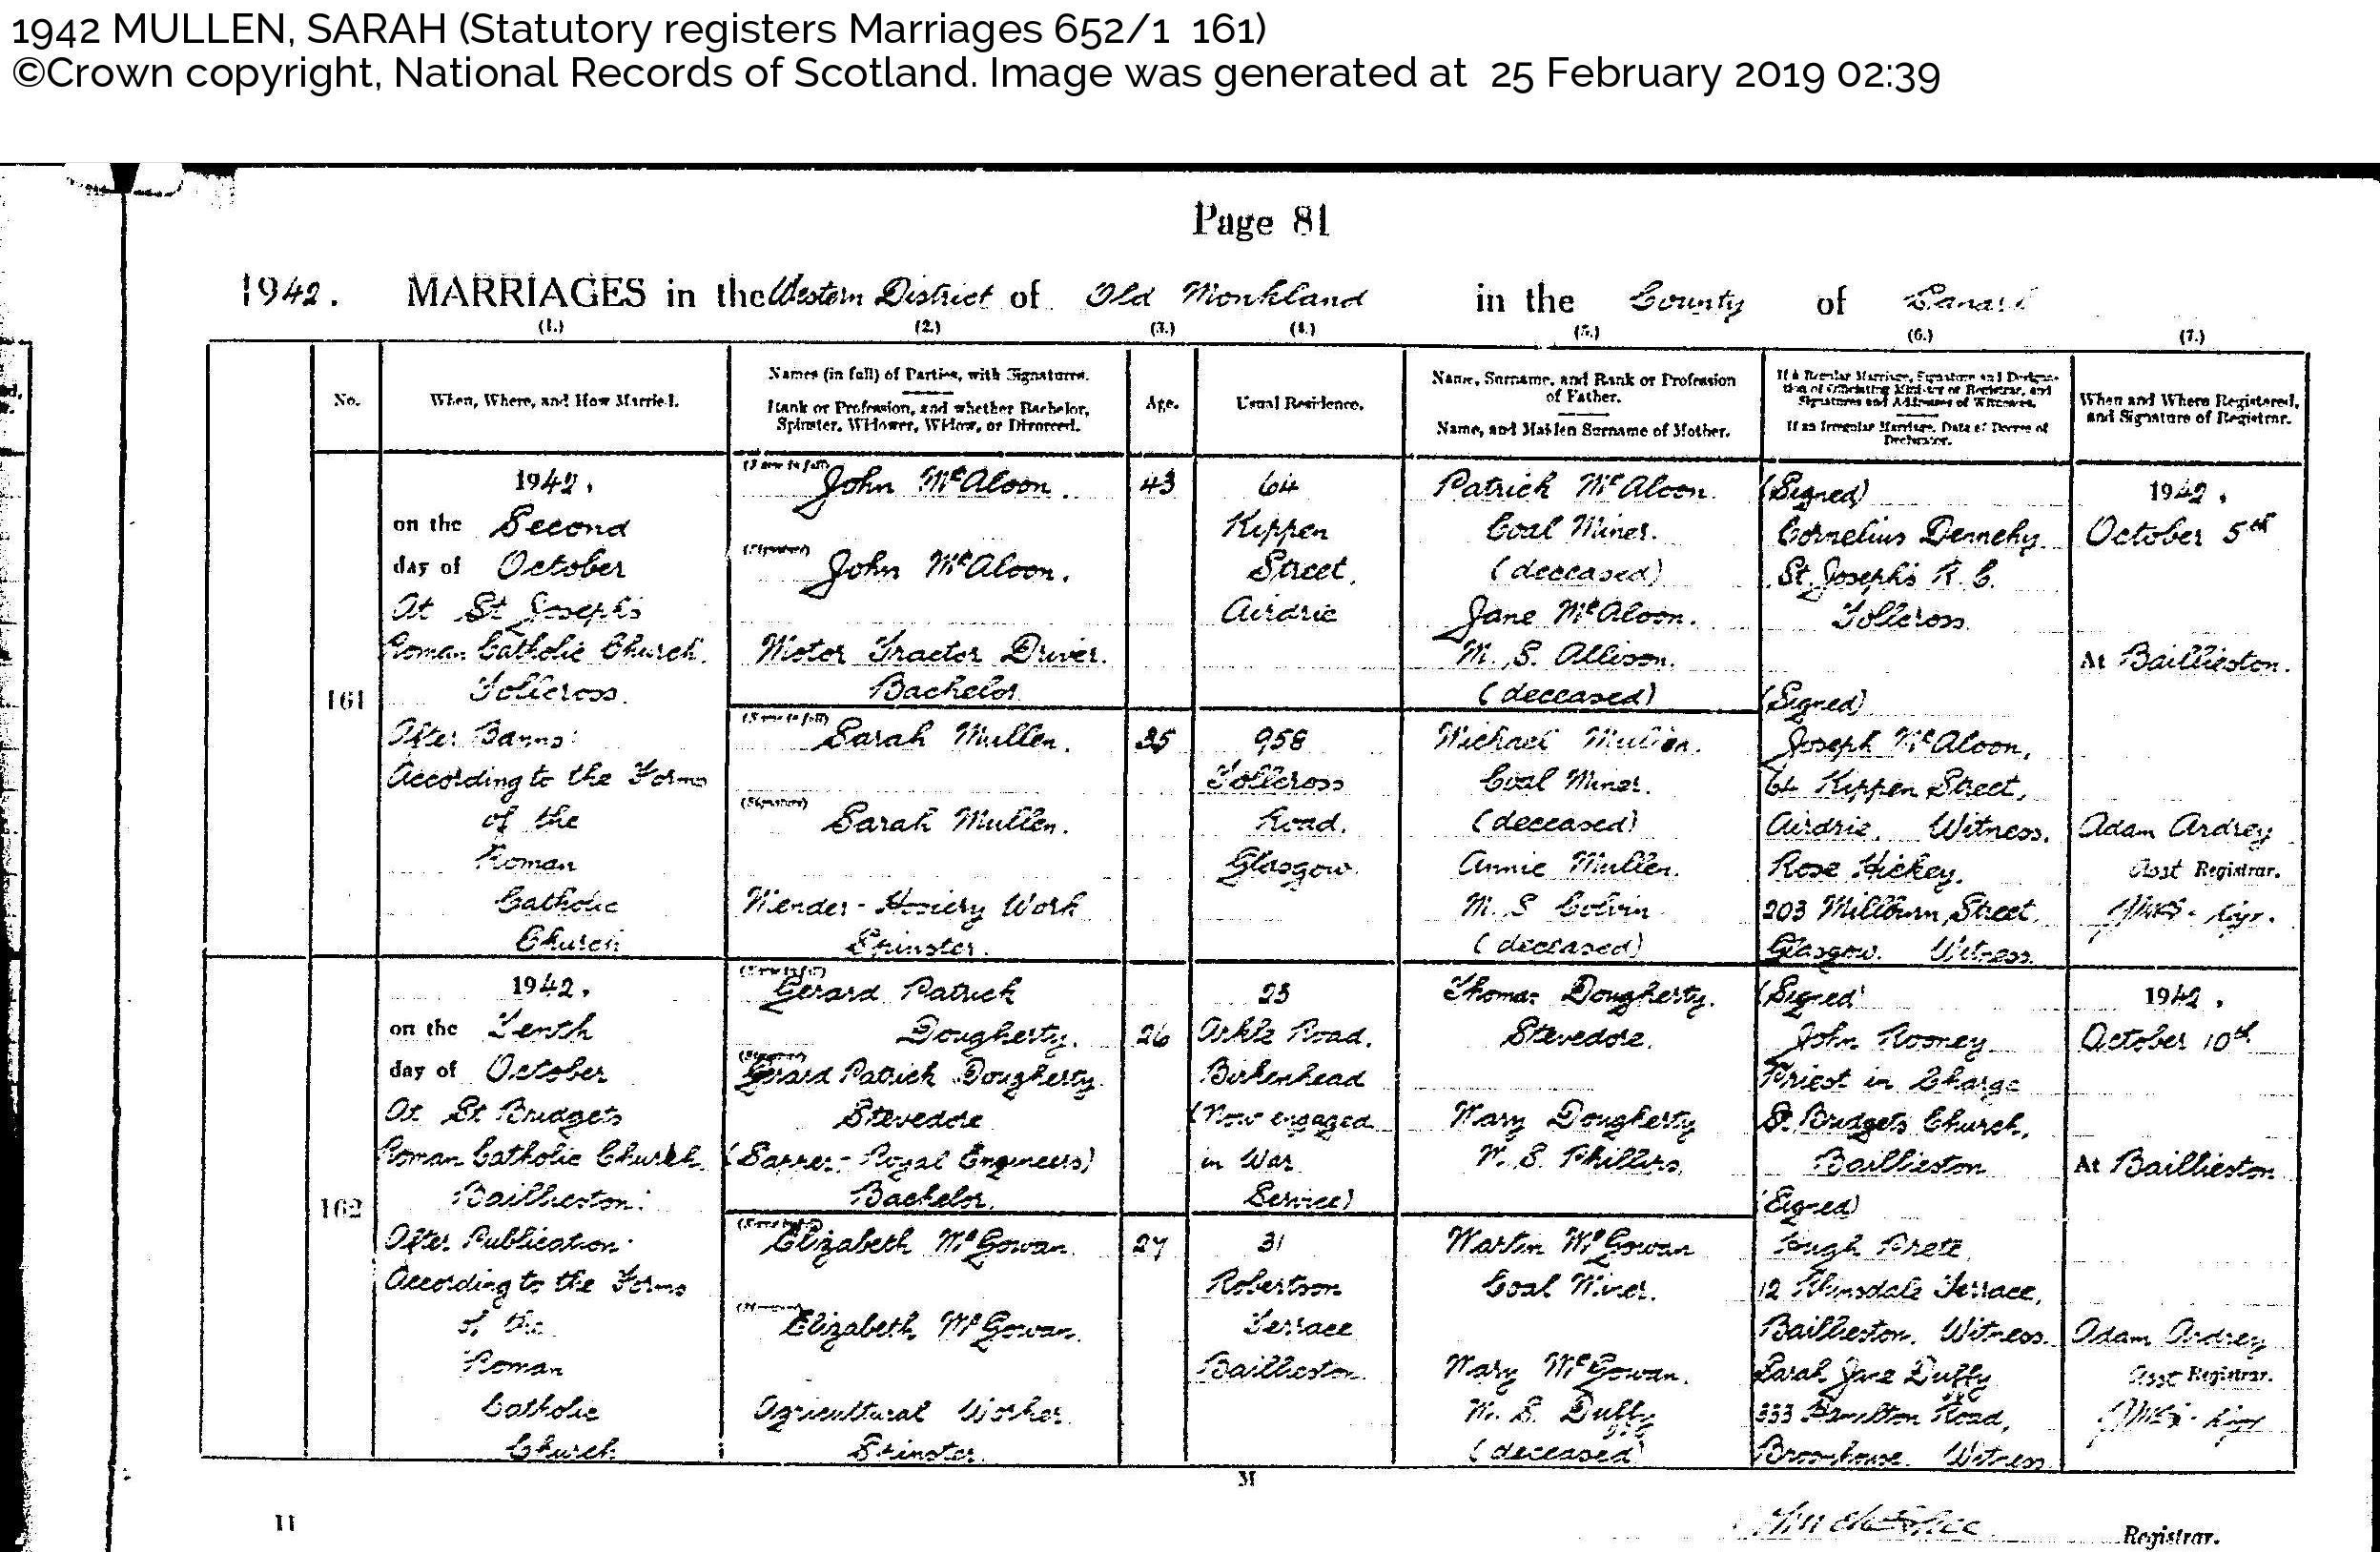 1942 MULLEN, SARAH (Statutory registers Marriages 652/1 161)
©Crown copyright, National Records of Scotland. Image was generated at 25 February 2019 02:39
Page 81
1942. MARRIAGES in the Western District of Old Monkland in the County of Lanark
(1.) (2.) (3.) (4.) (5.) (6.) (7.)
No.
When, Where, and How Married.
Names (in full) of Parties, with Signatures.
Rank or Profession, and whether Bachelor,
Spinster, Widower, Widow, or Divorced.
Age.
Usual Residence.
Name, Surname, and Rank or Profession
of Father.
Name, and Maiden Surname of Mother.
If a Regular Marriage, Signature and Designa-
tion of Officiating Minister or Registrar, and
Signatures and Addresses of Witnesses.
If an Irregular Marriage, Date of Decree of
Declarator.
When and Where Registered,
and Signature of Registrar.
161
1942.
on the Second
day of October
At St Joseph's
Roman Catholic Church.
Tollcross.
After Banns:
According to the Forms
of the
Roman
Catholic
Church
(Name in full)
John McAloon.
(Signature)
John McAloon.
Motor Tractor Driver.
Bachelor.
43
64
Kippen
Street,
Airdrie
Patrick McAloon.
Coal Miner.
(deceased)
Jane McAloon.
M. S. Allison.
(deceased)
(Name in full)
Sarah Mullen.
(Signature)
Sarah Mullen.
Mender - Hosiery Work
Spinster.
35
958
Tollcross
Road.
Glasgow.
Michael Mullen.
Coal Miner.
(deceased)
Annie Mullen.
M. S Colvin
(deceased)
(Signed)
Cornelius Dennehy.
St. Joseph's R. C.
Tollcross.
(Signed)
Joseph McAloon,
64 Kippen Street,
Airdrie. Witness.
Rose Hickey.
203 Millburn Street.
Glasgow. Witness.
1942.
October 5th
At Baillieston.
Adam Ardrey
Asst Registrar.
162
1942.
on the Tenth
day of October
At St Bridgets
Roman Catholic Church.
Baillieston:
After Publication:
According to the Forms
of the
Roman
Catholic
Church
(Name in full)
Gerard Patrick
Dougherty.
(Signature)
Gerard Patrick Dougherty.
Stevedore
(Sapper - Royal Engineers)
Bachelor.
26
23
Arkle Road.
Birkenhead
(Now engaged
in War
Service)
Thomas Dougherty.
Stevedore.
Mary Dougherty
M. S. Phillips.
(Name in full)
Elizabeth McGowan.
(Signature)
Elizabeth McGowan.
Agricultural Worker.
Spinster.
27
31
Robertson
Terrace
Baillieston.
Martin McGowan
Coal Miner.
Mary McGowan.
M. S. Duffy
(deceased)
(Signed)
John Rooney
Priest in Charge
St. Bridgets Church,
Baillieston
(Signed)
12 Terrace,
Baillieston. Witness.
Sarah Jane Duffy
333 Hamilton Road,
Broomhouse. Witness
1942.
October 10th
At Baillieston
Adam Ardrey
Asst Registrar.
11
Registrar.